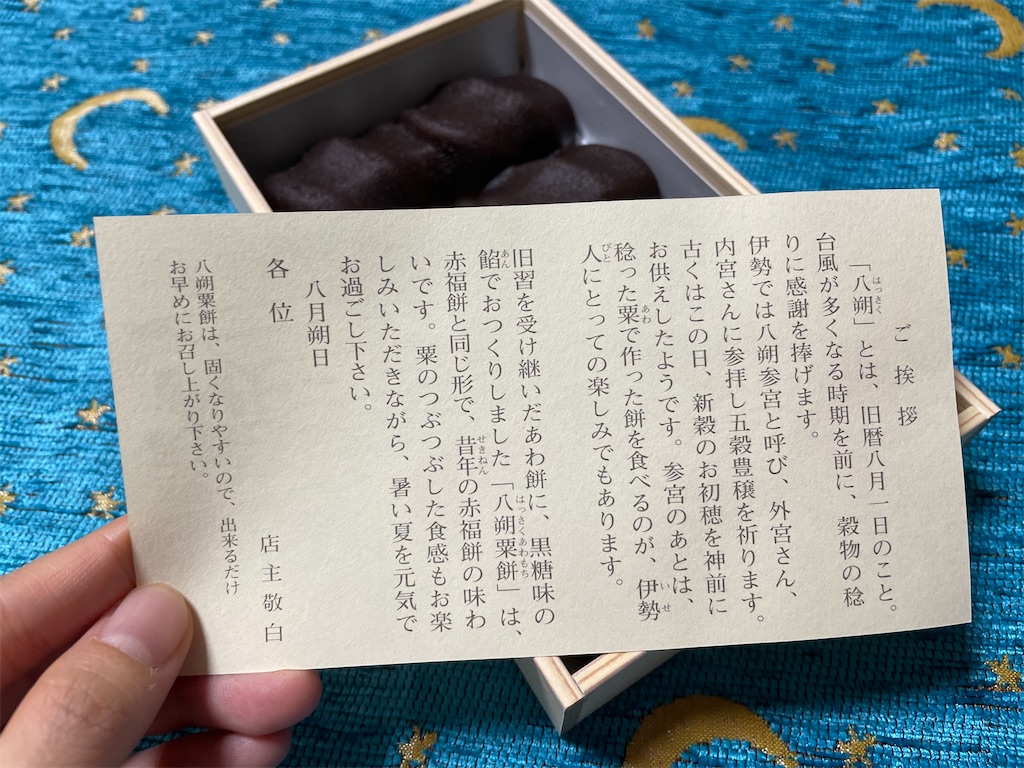 ご挨拶
「八朔」とは、旧暦八月一日のこと。
台風が多くなる時期を前に、穀物の稔
りに感謝を捧げます。
伊勢では八朔参宮と呼び、外宮さん、
内宮さんに参拝し五穀豊穣を祈ります。
古くはこの日、新穀のお初穂を神前に
お供えしたようです。参宮のあとは、
稔った粟で作った餅を食べるのが、伊勢
人にとっての楽しみでもあります。
旧習を受け継いだあわ餅に、黒糖味の
餡でおつくりしました「八朔粟餅」は、
赤福餅と同じ形で、昔年の赤福餅の味わ
いです。粟のつぶつぶした食感もお楽
しみいただきながら、暑い夏を元気で
お過ごし下さい。
八月朔日
各位
店主敬白
八朔粟餅は、固くなりやすいので、出来るだけ
お早めにお召し上がり下さい。